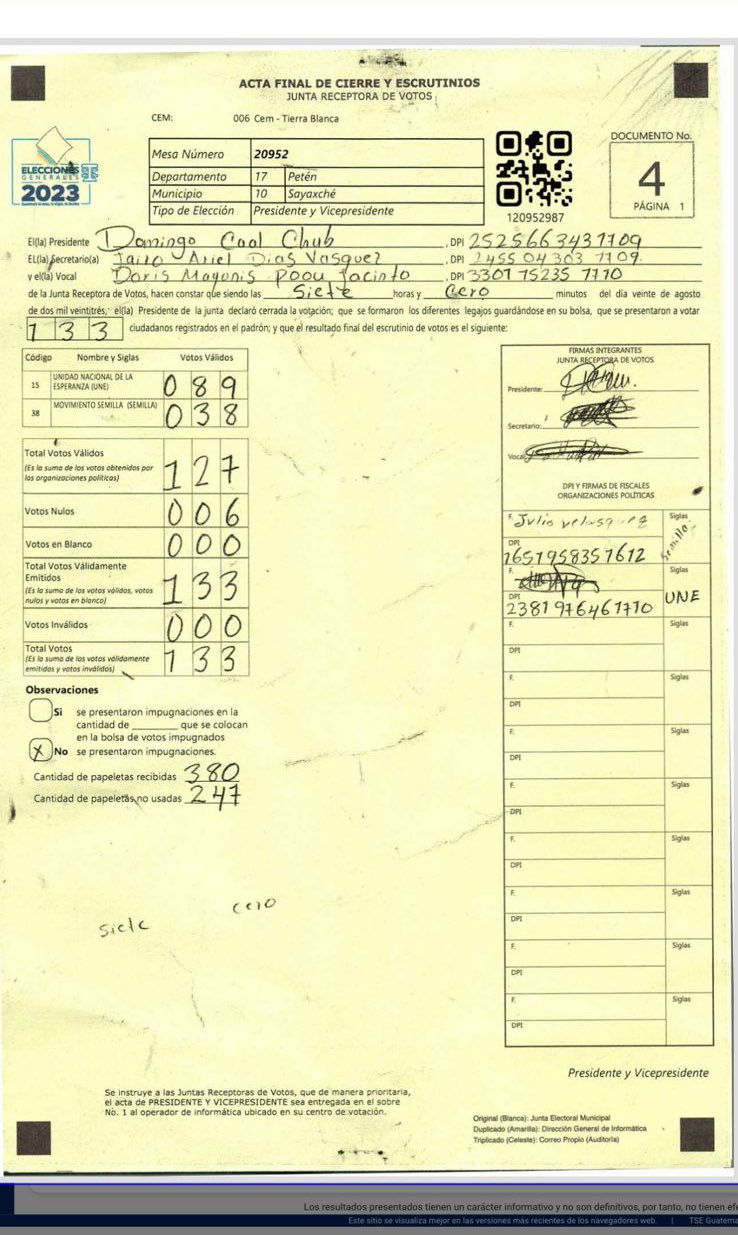 ACTA FINAL DE CIERRE Y ESCRUTINIOS
JUNTA RECEPTORA DE VOTOS
CEM: 006 Cem - Tierra Blanca
ELECCIONES
GENERALES
2023
Mesa Número 20952
Departamento 17 Petén
Municipio 10 Sayaxché
Tipo de Elección Presidente y Vicepresidente
120952987
DOCUMENTO No.
4
PÁGINA 1
El(la) Presidente Domingo Caal Chub, DPI 2525663431709
EL(la) Secretario(a) Jairo Ariel Dias Vasquez, DPI 2455 04303 1709
y el(la) Vocal Doris Mayonis Poou Jacinto, DPI 3301 75235 1710
de la Junta Receptora de Votos, hacen constar que siendo las Siete horas y Cero minutos del día veinte de agosto
de dos mil veintitrés, el(la) Presidente de la junta declaró cerrada la votación; que se formaron los diferentes legajos guardándose en su bolsa, que se presentaron a votar
133 ciudadanos registrados en el padrón; y que el resultado final del escrutinio de votos es el siguiente:
Código Nombre y Siglas Votos Válidos
15 UNIDAD NACIONAL DE LA
ESPERANZA (UNE) 089
38 MOVIMIENTO SEMILLA (SEMILLA) 038
Total Votos Válidos
(Es la suma de los votos obtenidos por
las organizaciones políticas) 127
Votos Nulos 006
Votos en Blanco 000
Total Votos Válidamente
Emitidos
(Es la suma de los votos válidos, votos
nulos y votos en blanco) 133
Votos Inválidos 000
Total Votos
(Es la suma de los votos válidamente
emitidos y votos inválidos) 133
Observaciones
Si se presentaron impugnaciones en la
cantidad de que se colocan
en la bolsa de votos impugnados
X No se presentaron impugnaciones.
Cantidad de papeletas recibidas 380
Cantidad de papeletas no usadas 247
siete cero
FIRMAS INTEGRANTES
JUNTA RECEPTORA DE VOTOS
Presidente:
Secretario:
Vocal:
DPI Y FIRMAS DE FISCALES
ORGANIZACIONES POLÍTICAS
F. Julio Siglas
DPI 1651958351612 Semilla
F. Siglas
DPI 2381976461710 UNE
F. Siglas
DPI
F. Siglas
DPI
F. Siglas
DPI
F. Siglas
DPI
F. Siglas
DPI
F. Siglas
DPI
F. Siglas
DPI
F. Siglas
DPI
Presidente y Vicepresidente
Se instruye a las Juntas Receptoras de Votos, que de manera prioritaria,
el acta de PRESIDENTE Y VICEPRESIDENTE sea entregada en el sobre
No. 1 al operador de informática ubicado en su centro de votación.
Original (Blanca): Junta Electoral Municipal
Duplicado (Amarilla): Dirección General de Informática
Triplicado (Celeste): Correo Propio (Auditoría)
Los resultados presentados tienen un carácter informativo y no son definitivos, por tanto, no tienen efe
Este sitio se visualiza mejor en las versiones más recientes de los navegadores web. | TSE Guatema